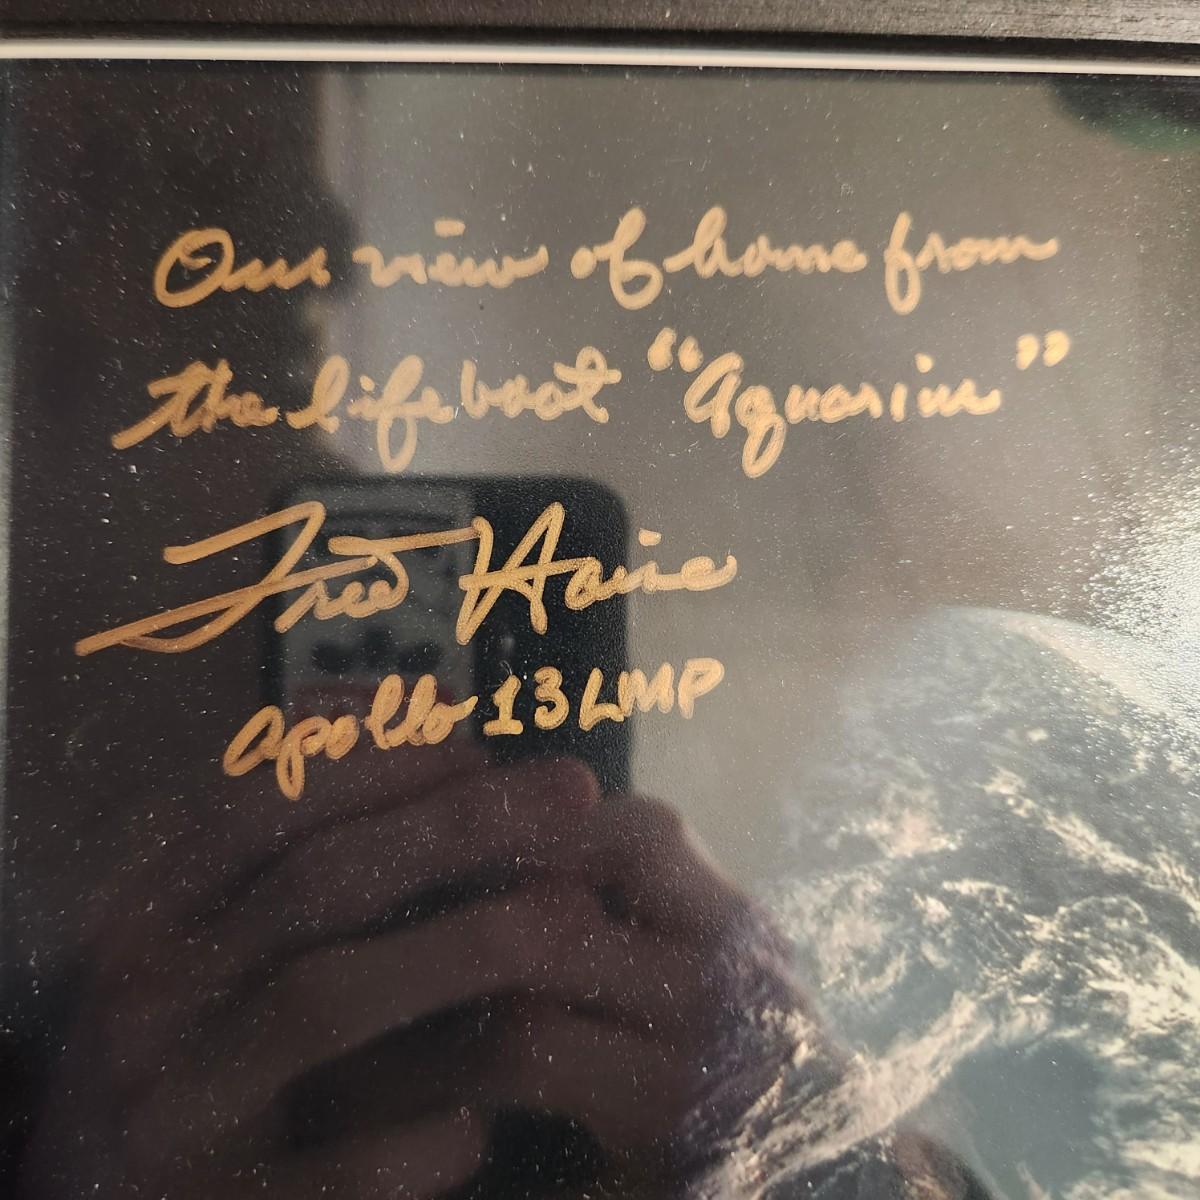 Our view of home from
the lifeboat "Aquarius"
Fred Haise
Apollo 13 LMP